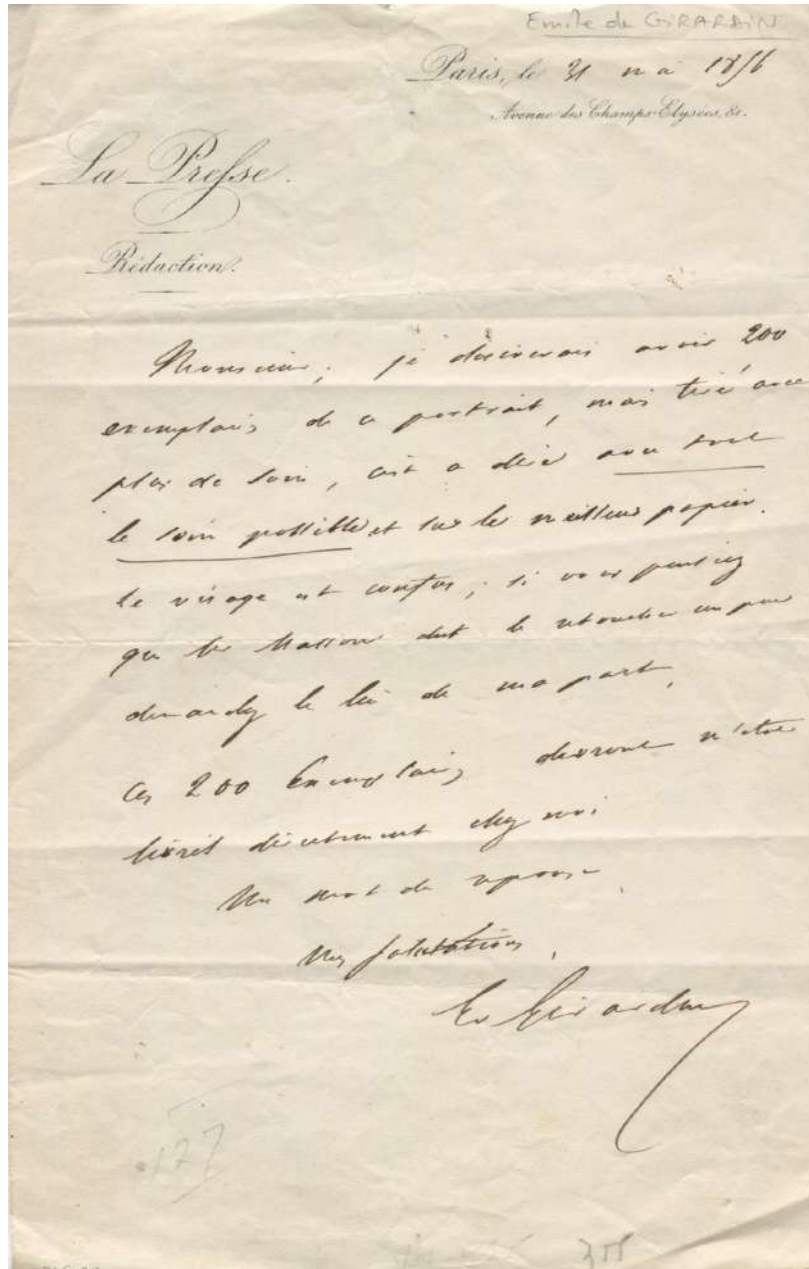 Emile de GIRARDIN
Paris, le 31 mai 1856
Avenue des Champs-Elysées, 81.
La Presse.
Rédaction.
Monsieur, je désirerais avoir 200
exemplaires de ce portrait, mais tiré avec
plus de soin, c'est a dire avec tout
le soin possible et sur le meilleur papier.
le visage est confus, si vous pensiez
que Mr Masson dut le retoucher un peu
demandez le lui de ma part.
Ces 200 Exemplaires devront m'être
livrés directement chez moi
Un mot de réponse
Mes salutations.
E de Girardin
127